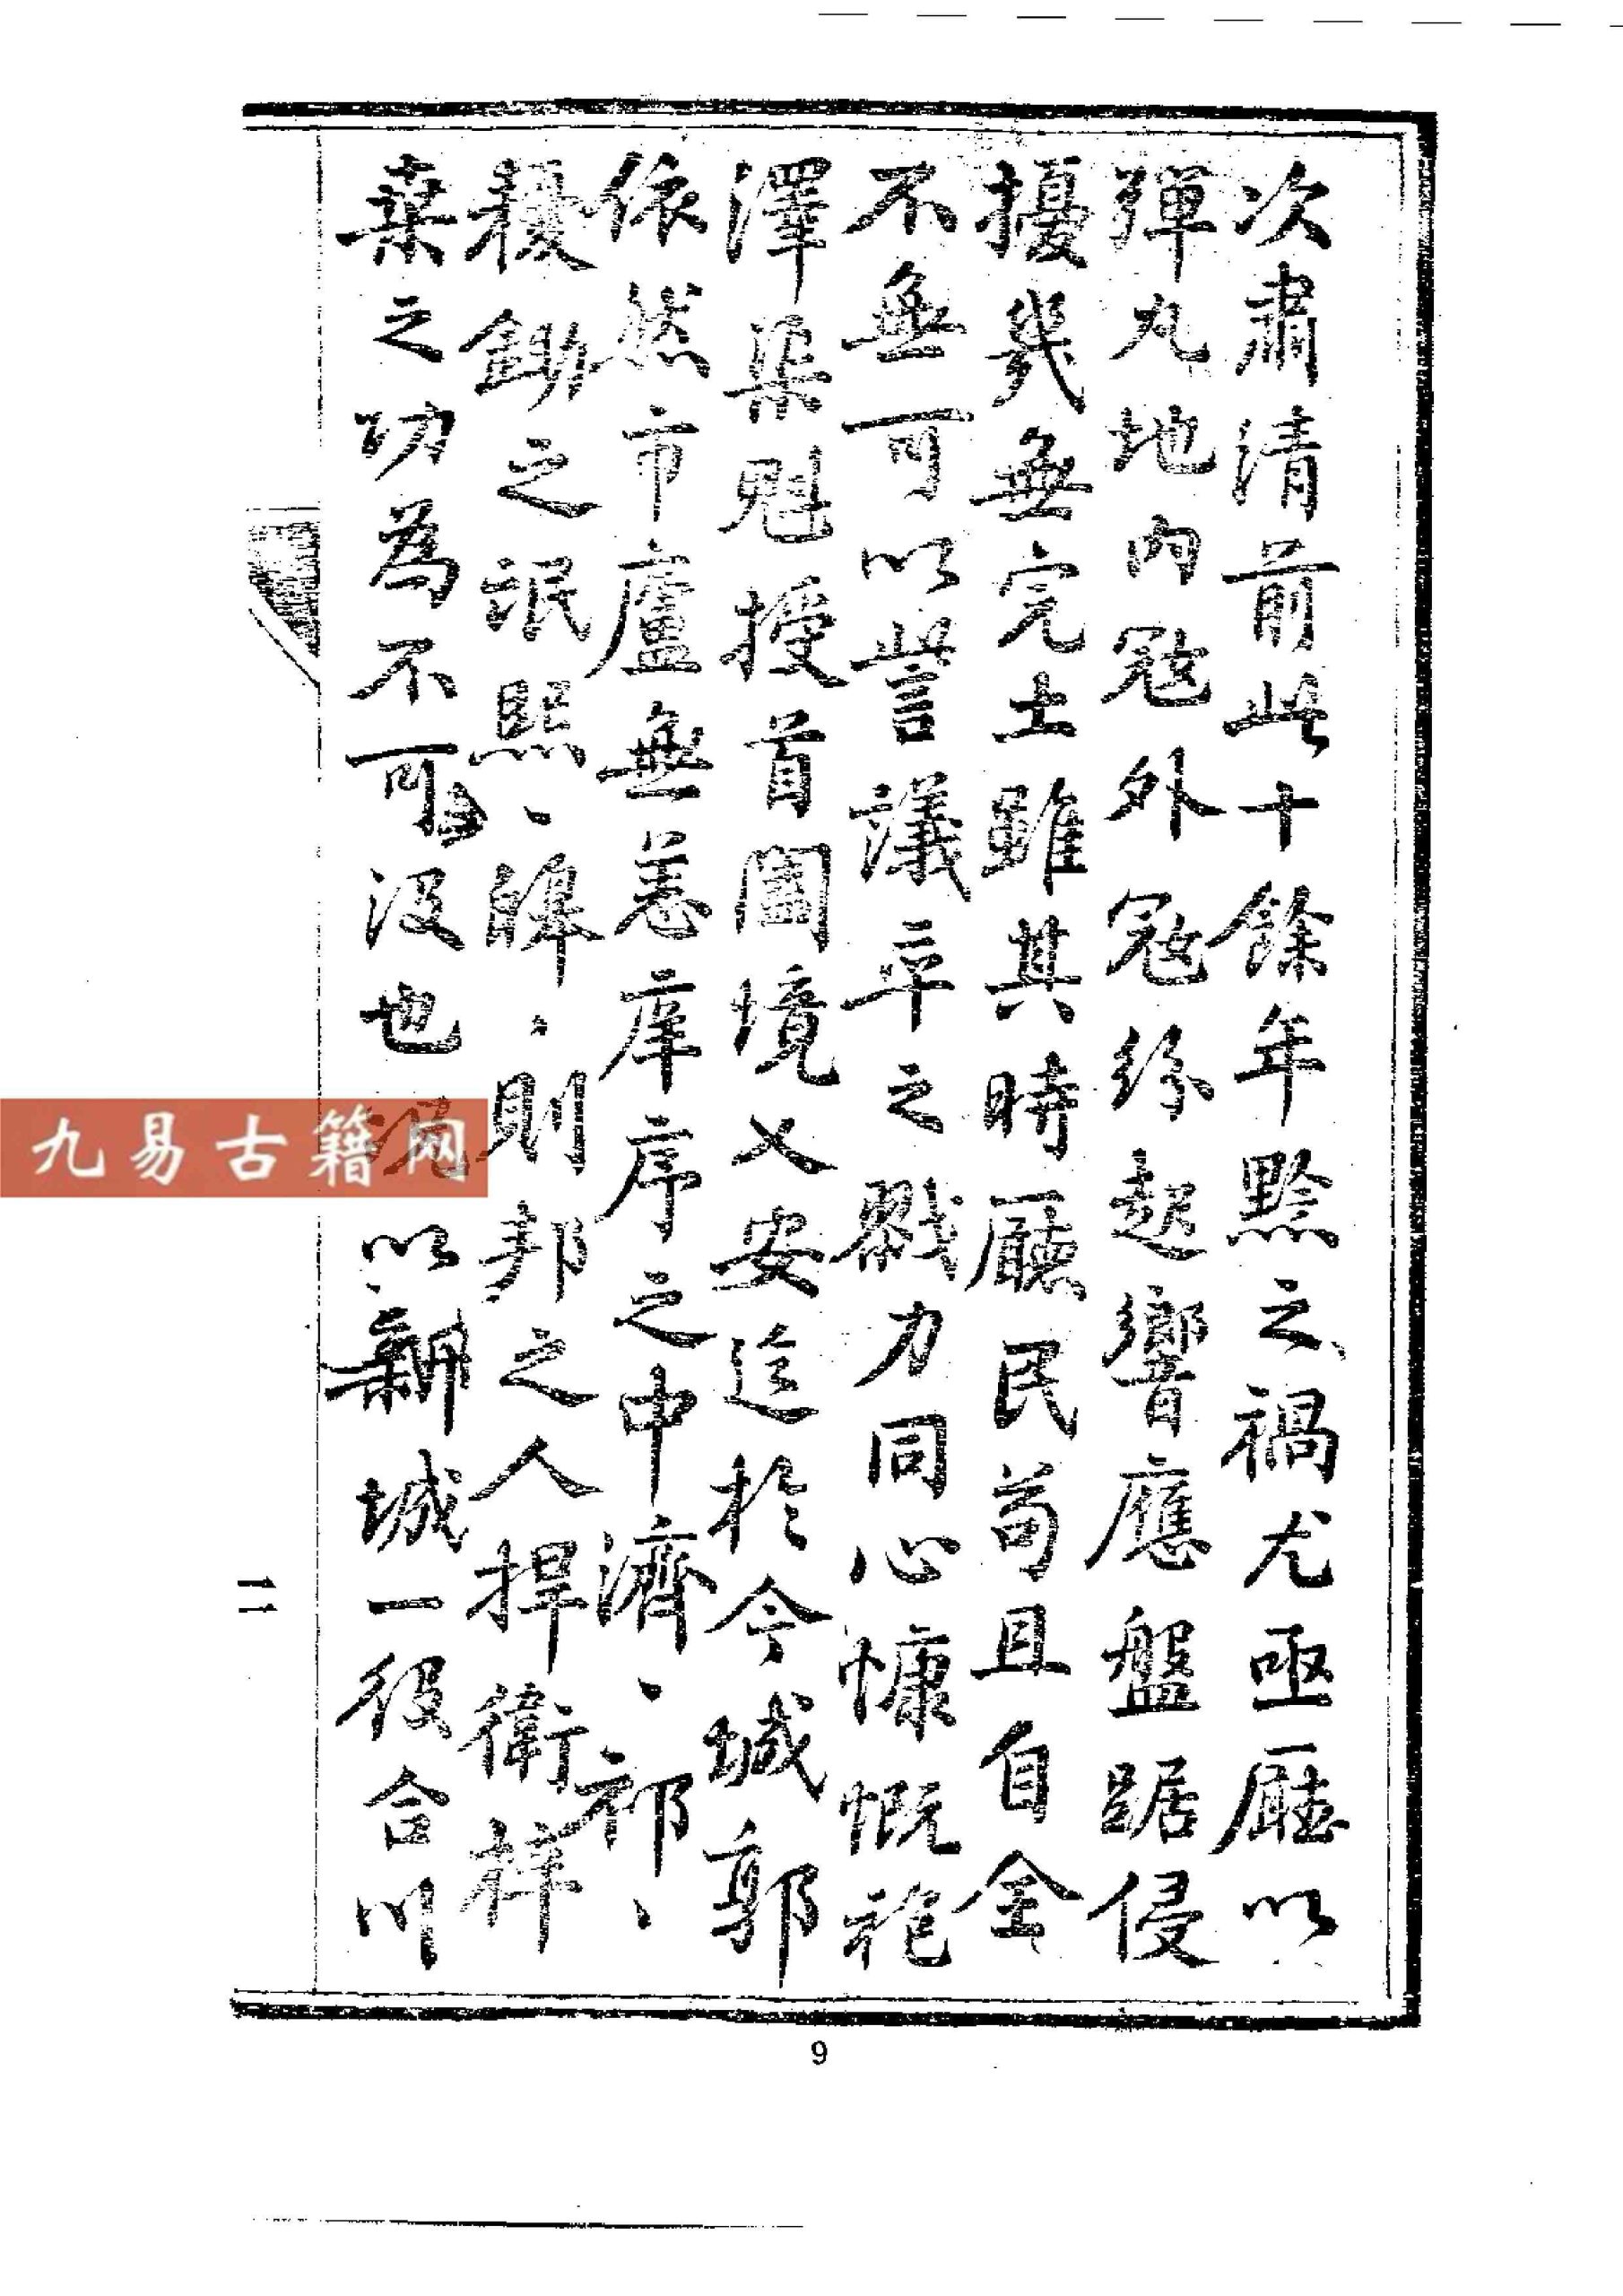 次肅清前此十餘年黔之禍尤亟廳以
彈丸地內寇外寇紛起響應盤踞侵
擾幾無完土雖其時廳民苟且自全
不無可以訾議卒之戮力同心慷慨袍
澤渠魁授首闔境乂安迄於今城郭
依然市廬無恙庠序之中濟、祁、
耰鋤之氓熙、皞、則邦之人捍衛梓
桑之功為不可沒也 以新城一役合川
二
9
九易古籍网